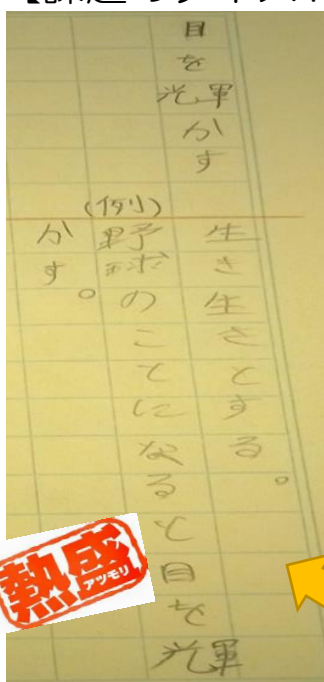 目を輝かす
生き生きとする。
(例)
野球のことになると目を輝
かす。
熱盛
アツモリ